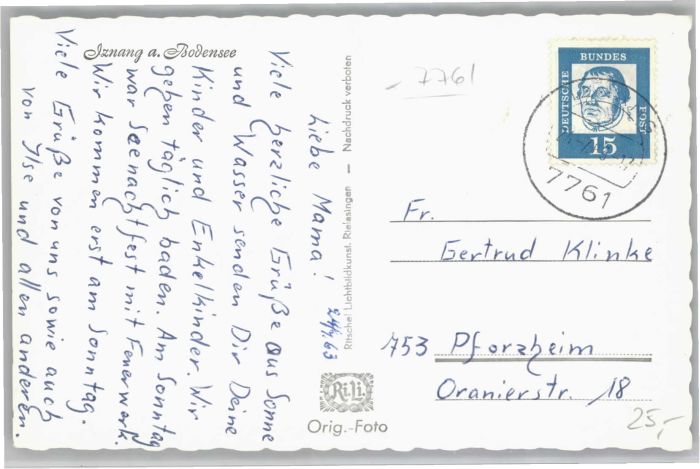 Iznang a. Bodensee
Liebe Mama! 24/7.63
Viele herzliche Grüße aus Sonne
und Wasser senden Dir Deine
Kinder und Enkelkinder. Wir
gehen täglich baden. Am Sonntag
war Seenachtfest mit Feuerwerk.
Wir kommen erst am Sonntag.
Viele Grüße von uns sowie auch
von Ilse und allen anderen.
Ritschel Lichtbildkunst, Rielasingen — Nachdruck verboten
Ri.Li.
Orig.-Foto
7761
DEUTSCHE
BUNDES
POST
15
7761
Fr.
Gertrud Klinke
753 Pforzheim
Oranierstr. 18
25,-